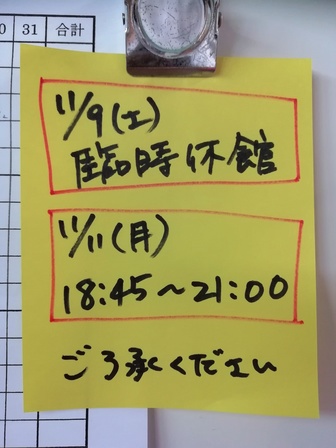 0 31 合計
11/9(土)
臨時休館
11/11(月)
18:45～21:00
ごろ承ください